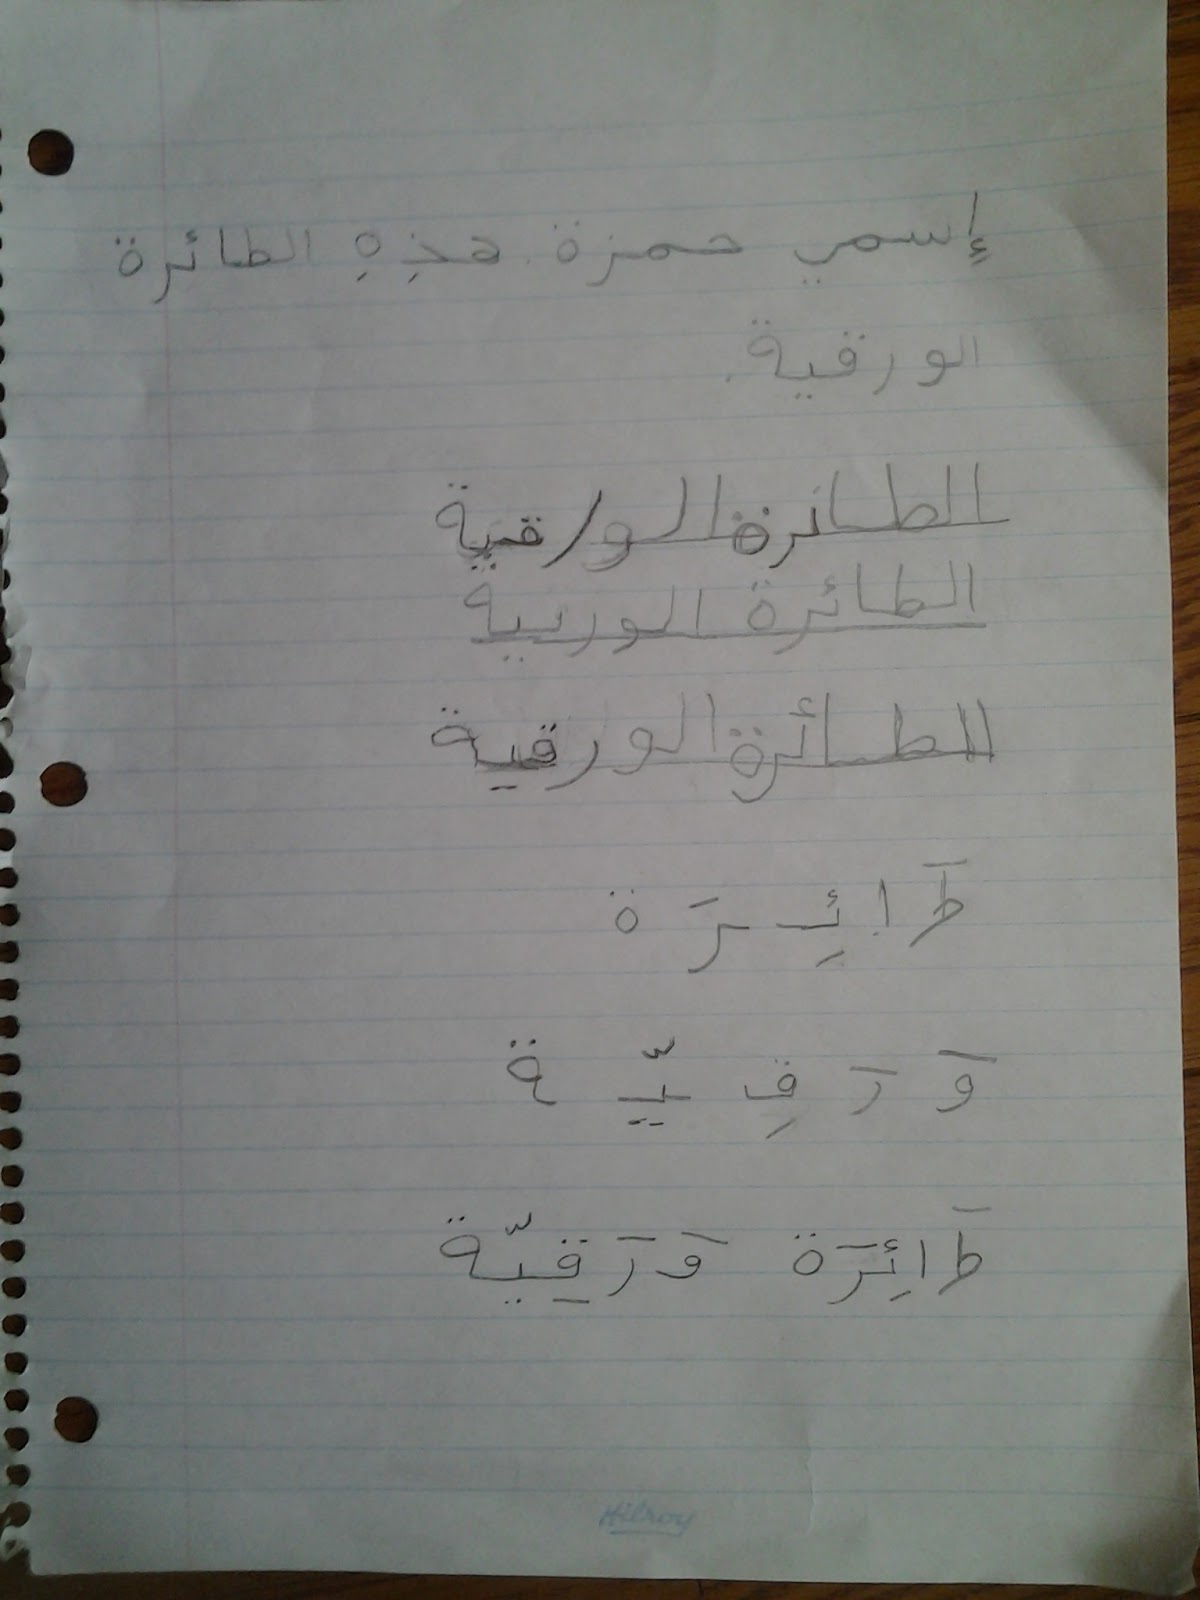 إسمي حمزة. هذِهِ الطائرة
الورقية.
الطائرة الورقية
الطائرة الوربية
الطائرة الورقية
طَ ا ئِـ ـرَ ة
وَ رَ قِـ ـيّـ ـة
طَائِرَة وَرَقِيّة
Hilroy